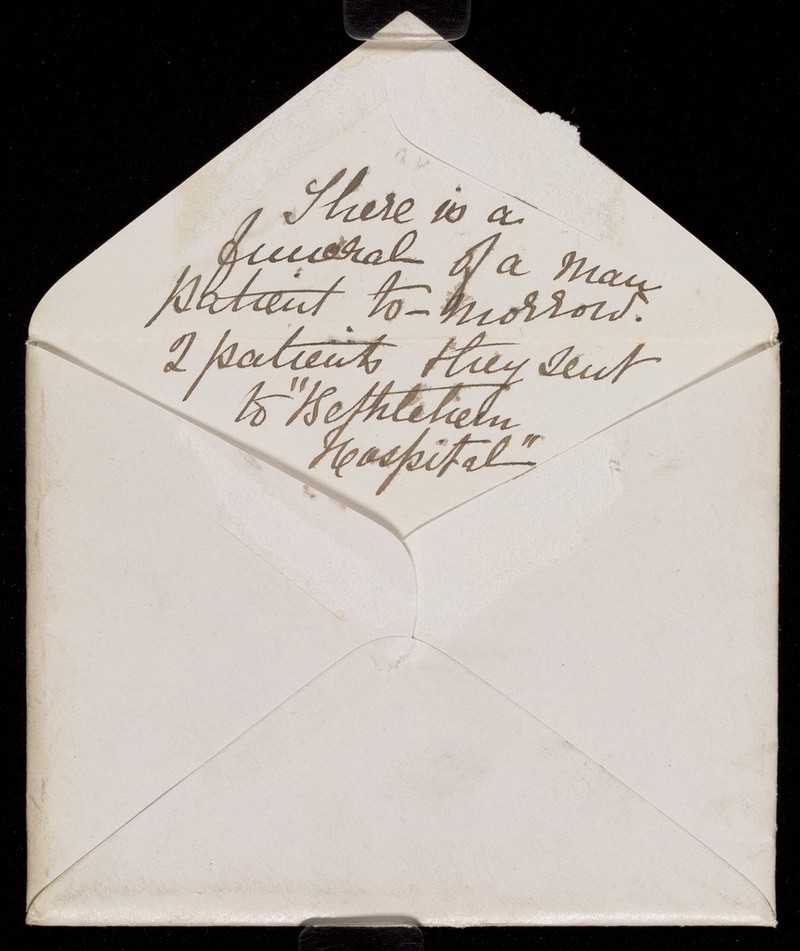 There is a
funeral of a man
patient to-morrow.
2 patients they sent
to "Bethlehem
Hospital"